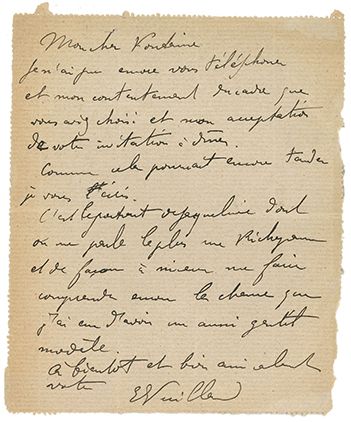 Mon cher Fontaine
Je n'ai pu encore vous téléphoner
et mon contentement du cadre que
vous avez choisi et mon acceptation
de votre invitation à dîner.
Comme cela pourrait encore tarder
je vous l'écris.
C'est le portrait de Jacqueline dont
on me parle le plus rue Richepanse
et de façon à mieux me faire
comprendre encore la chance que
j'ai eu d'avoir un aussi gentil
modèle.
à bientôt et bien amicalement
votre EVuillard